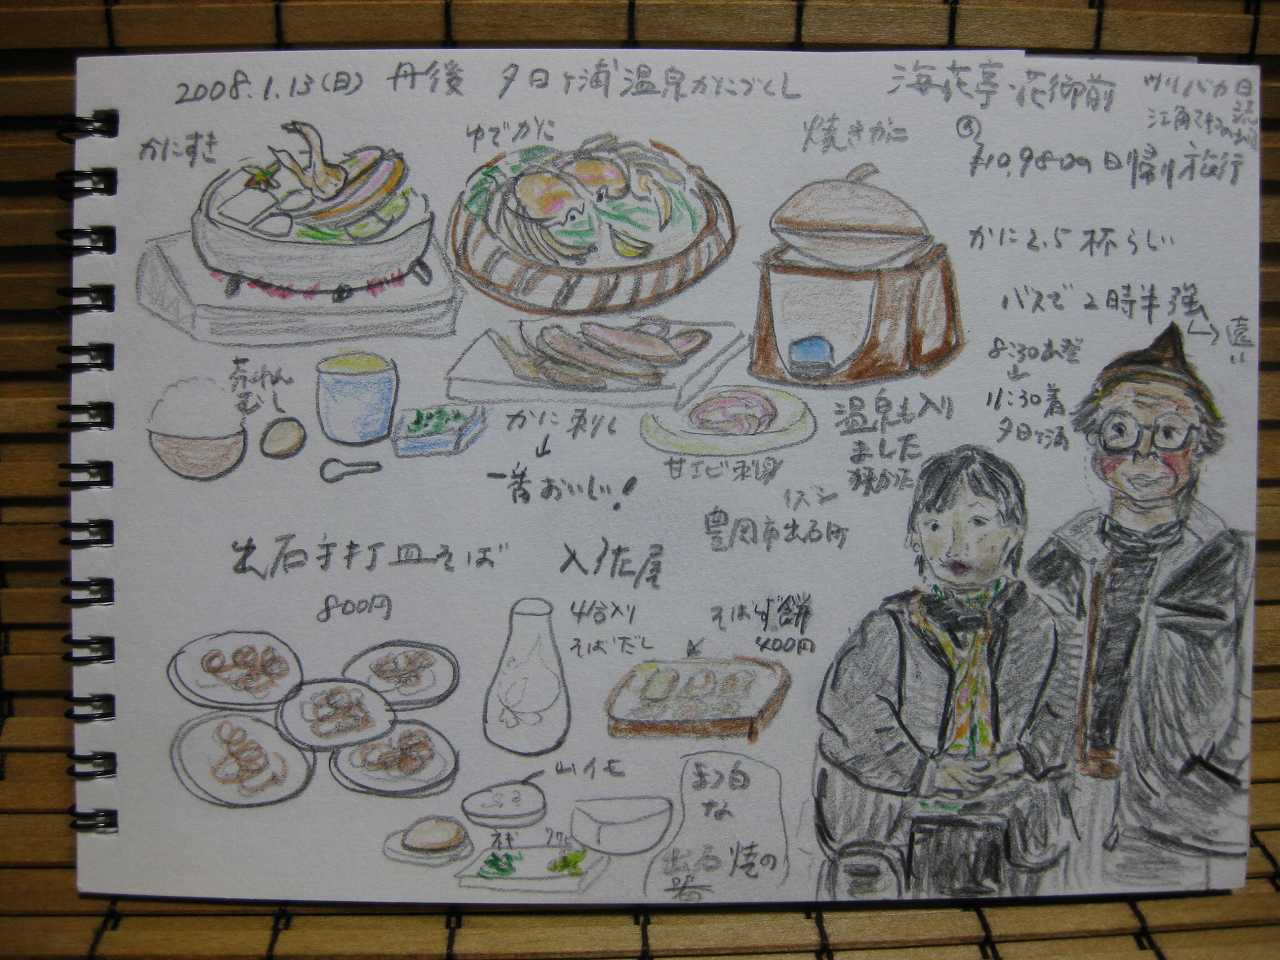 2008.1.13(日) 丹後 夕日ヶ浦温泉かにづくし
海花亭 花御前
ツリバカ日誌
かにすき
ゆでがに
焼きがに
¥10,980の日帰り旅行
かに2.5杯らしい
バスで2時半強
↔遠い
8:30出発
↓
11:30着
夕日ヶ浦
茶わんむし
かに刺し
↓
一番おいしい!
甘エビ刺身
温泉も入り
ました
イズシ
豊岡市出石町
出石手打皿そば
800円
4合入り
そばだし
400円
山イモ
ネギ
まっ白
な
出石焼の
器